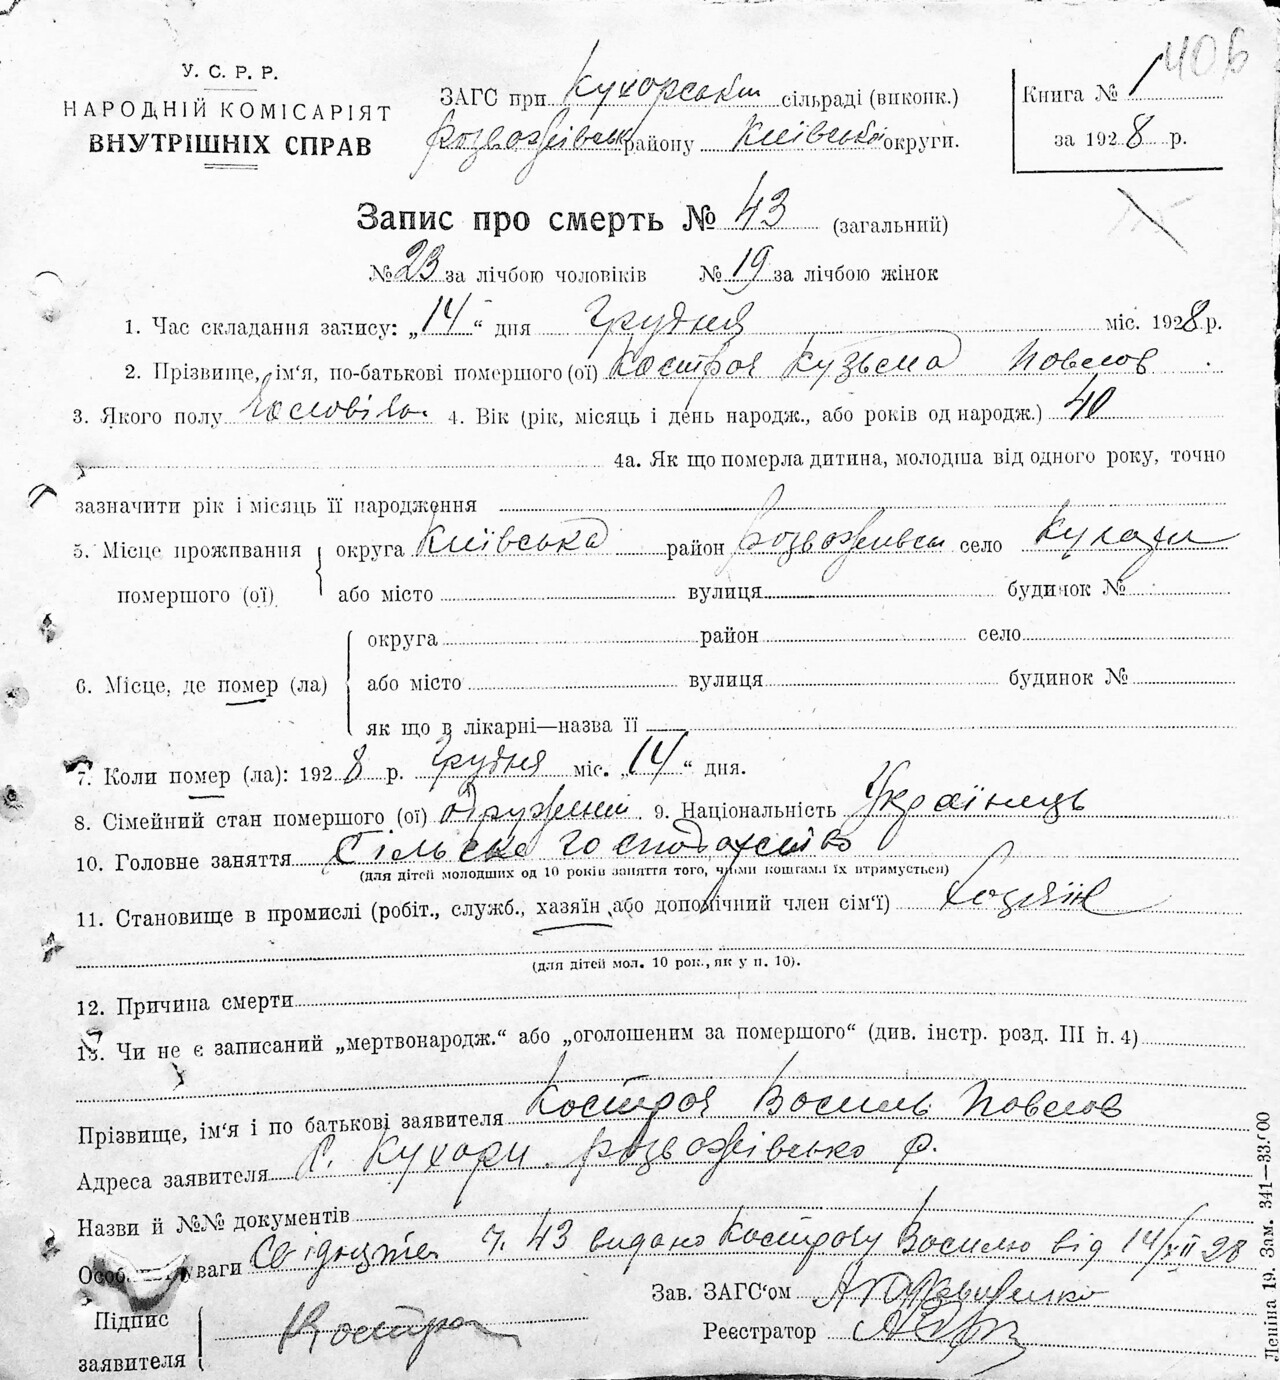 406
У. С. Р. Р.
НАРОДНІЙ КОМІСАРІЯТ
ВНУТРІШНІХ СПРАВ
ЗАГС при Кухорськім сільраді (виконк.)
Розважівськ району Київської округи.
Книга № 1
за 1928 р.
Запис про смерть № 43 (загальний)
№ 23 за лічбою чоловіків № 19 за лічбою жінок
1. Час складання запису: „14“ дня Грудня міс. 1928 р.
2. Прізвище, ім'я, по-батькові помершого (ої) Костроя Кузьма Повлов
3. Якого полу Чоловіча. 4. Вік (рік, місяць і день народж., або років од народж.) 40
4а. Як що померла дитина, молодша від одного року, точно
зазначити рік і місяць її народження
5. Місце проживання помершого (ої) округа Київська район Розважівськ село Кухари
або місто вулиця будинок №
6. Місце, де помер (ла) округа район село
або місто вулиця будинок №
як що в лікарні—назва її
7. Коли помер (ла): 1928 р. Грудня міс. „14“ дня.
8. Сімейний стан помершого (ої) одружений. 9. Національність Українець
10. Головне заняття Сільське господарство
(для дітей молодших од 10 років заняття того, чиїми коштами їх втримується)
11. Становище в промислі (робіт., служб., хазяїн або допомічний член сім'ї) Хозяїн
(для дітей мол. 10 рок., як у п. 10).
12. Причина смерти
13. Чи не є записаний „мертвонародж.“ або „оголошеним за помершого“ (див. інстр. розд. III п. 4)
Прізвище, ім'я і по батькові заявителя Костроя Василь Повлов
Адреса заявителя с. Кухори Розважівсько р.
Назви й №№ документів
Особ уваги Свідоцтво ч. 43 видано Кострою Василю від 14/XII 28
Зав. ЗАГС'ом
Підпис заявителя Костроя
Реєстратор
Леніна 19. Зам. 341—33.000